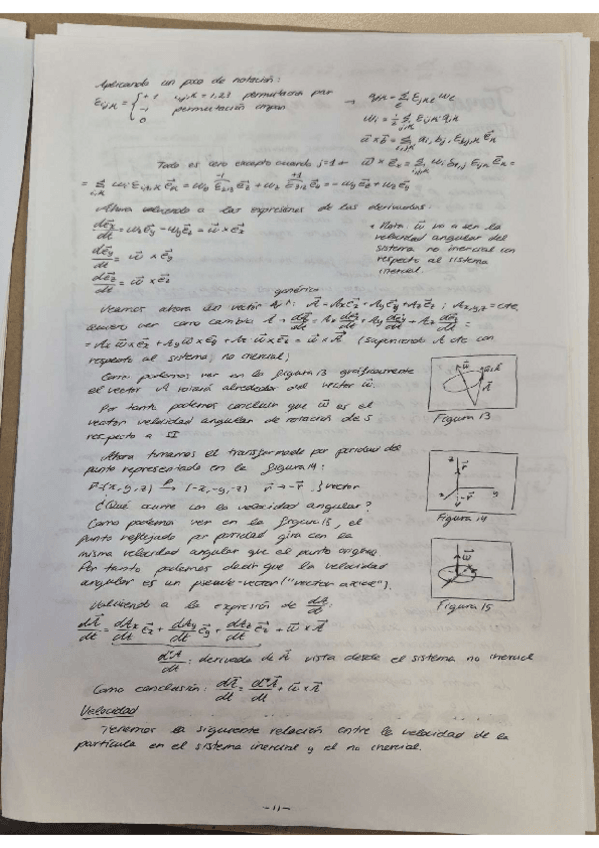 Aplicando un poco de notación:
ε_ijk = { +1 i,j,k = 1,2,3 permutación par
-1 permutación impar
0
→ q_jk = Σ_e ε_jke w_e
w_i = 1/2 Σ_j,k ε_ijk q_jk
w⃗ × b⃗ = Σ_i,j,k a_i b_j ε_ijk e⃗_k
Todo es cero excepto cuando j=1 → w⃗ × e⃗_x = Σ_i,j,k w_i δ_1,j ε_ijk e⃗_k =
Ahora volviendo a las expresiones de las derivadas:
de⃗_x/dt = w_z e⃗_y - w_y e⃗_z = w⃗ × e⃗_x
de⃗_y/dt = w⃗ × e⃗_y
de⃗_z/dt = w⃗ × e⃗_z
* Nota: w⃗ va a ser la
velocidad angular del
sistema no inercial con
respecto al sistema
inercial.
genérico
Veamos ahora un vector A⃗: A⃗ = A_x e⃗_x + A_y e⃗_y + A_z e⃗_z ; A_x,y,z = cte,
quiero ver como cambia A → dA⃗/dt = A_x de⃗_x/dt + A_y de⃗_y/dt + A_z de⃗_z/dt =
= A_x w⃗ × e⃗_x + A_y w⃗ × e⃗_y + A_z w⃗ × e⃗_z = w⃗ × A⃗ (suponiendo A cte con
respecto al sistema no inercial)
Como podemos ver en la figura 13 gráficamente
el vector A rotará alrededor del vector w⃗.
Por tanto podemos concluir que w⃗ es el
vector velocidad angular de rotación de S
respecto a SI
w⃗
A⃗
Figura 13
Ahora tomamos el transformado por paridad del
punto representado en la figura 14:
r⃗ = (x, y, z) →P (-x, -y, -z) r⃗ → -r⃗ } vector
z
r⃗
x
y
-r⃗
Figura 14
¿Qué ocurre con la velocidad angular?
Como podemos ver en la figura 15, el
punto reflejado por paridad gira con la
misma velocidad angular que el punto origen.
Por tanto podemos decir que la velocidad
angular es un pseudo-vector ("vector axial").
w⃗
Figura 15
Volviendo a la expresión de dA⃗/dt:
dA⃗/dt = dA_x/dt e⃗_x + dA_y/dt e⃗_y + dA_z/dt e⃗_z + w⃗ × A⃗
d*A⃗/dt: derivada de A⃗ vista desde el sistema no inercial
Como conclusión: dA⃗/dt = d*A⃗/dt + w⃗ × A⃗
Velocidad
Tenemos la siguiente relación entre la velocidad de la
partícula en el sistema inercial y el no inercial.
-11-